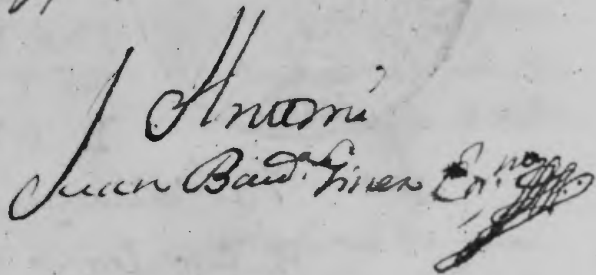 Antemi
Juan Baut.ᵃ Giner Es.ⁿᵒ